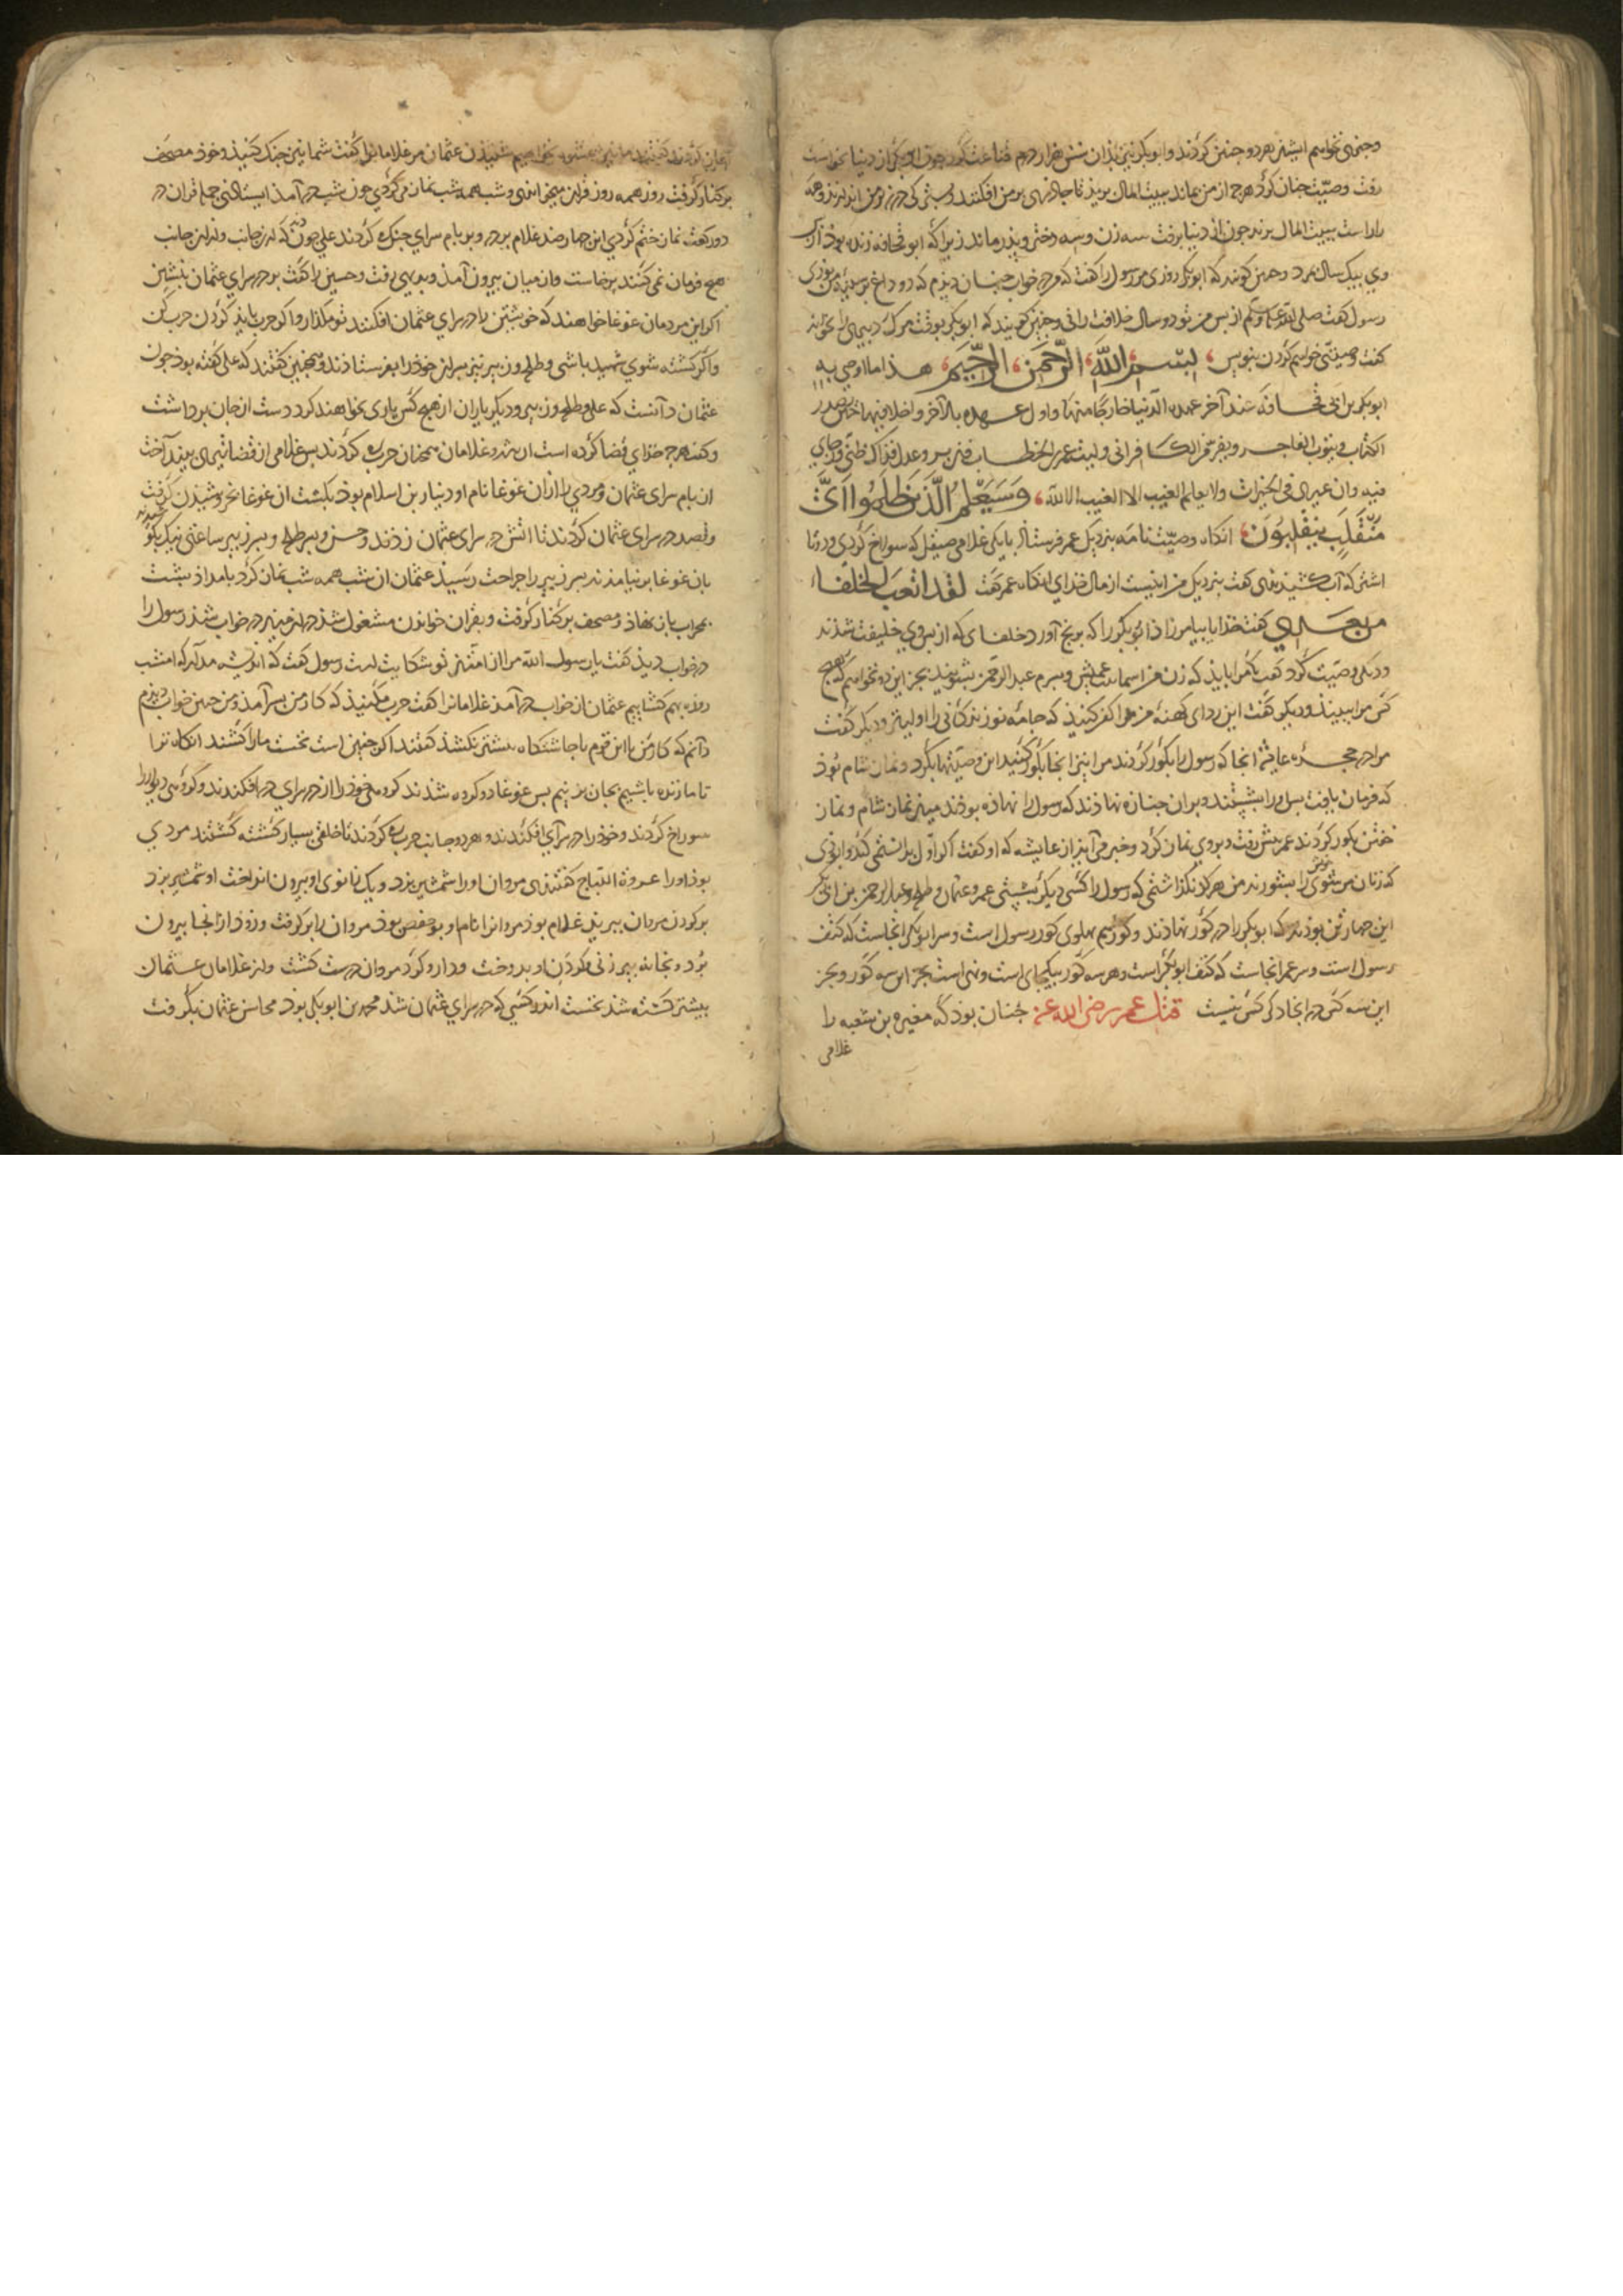 وجیزی نخواهم ایشان هر دو چنین کردند و ابوبکر نیز بذان شش هزار درم قناعت کرد چون ابوبکر از دنیا بخواست
رفت وصیّت چنان کرد هرچ از من بماند ببیت المال برید تا جاذرهای بر من افکنند و
را راست ببیت المال برند چون از دنیا برفت سه زن و سه دختر و پذر ماند زیرا که ابو قحافه زنده بوذ از بس
وی بیک سال بمرد و چنین کویند که ابوبکر روزی مر رسول را کفت که من در خواب چنان دیذم که دو داغ بر سینهٔ من بوذی
رسول کفت صلی الله علیه وسلم از بس من تو دو سال خلافت رانی و چنین کویند که ابوبکر بوقت مرک دبیری را بخواند
کفت وصیتی خواهم کردن بنویس بسم الله الرحمن الرحیم هذا ما اوصی به
ابوبکر بن ابی قحافه عند آخر عهده الدنیا خارجًا منها و اول عهده بالآخر داخلا فیها حین یصدر
الکذاب و یتوب الفاجر و یؤمن الکافر انی ولیت عمر بن الخطاب فان بر و عدل فذاک ظنّی و رجای
فیه وان غیر فی الخیرات ولا یعلم الغیب الا الله وَسَیَعْلَمُ الَّذینَ ظَلَمُوا اَیَّ
مُنْقَلَبٍ یَنْقَلِبُونَ انکاه وصیّت نامه بنزدیک عمر فرستاذ با یکی غلامی صیقل که سوراخ کردی و دوتا
اشتر که آب کشیذندی کفت بنزدیک من اینست از مال خذای انکاه عمر کفت لقد اتعب الخلفاء
من بعدی کفت خذایا بیامرزاذ ابوبکر را که برنج آورد خلفای که از بس وی خلیفت شذند
و دیکر وصیّت کرد کفت مرا بایذ که زن من اسما بنت عمیس و بسرم عبدالرحمن بشویند بجز این دو نخواهم که هیچ
کس مرا ببیند و دیکر کفت این ردای کهنهٔ من مرا کفن کنیذ که جامه نو زندکانی را اولیتر و دیکر کفت
مرا در حجره عایشه انجا که رسول را بکور کردند مرا نیز انجا بکور کنید این وصیّتها بکرد و نماز شام بوذ
که فرمان یافت بس او را بشستند و بران جنازه نهاذند که رسول را نهاذه بوذند میان نماز شام و نماز
خفتن بکور کردند عمر بیش رفت و بر وی نماز کرد و خبر می آید از عایشه که او کفت اکر اول بدانستمی که روا بوذی
که زنان مر شوی خویش را بشورند من هرکز نکذاشتمی که رسول را کسی دیکر بشستی عمر و عثمان و طلحه و عبدالرحمن بن ابی بکر
این چهار تن بوذند که ابوبکر را در کور نهاذند و کور هم بهلوی کور رسول است و سر ابوبکر انجاست که کتف
رسول است و سر عمر انجاست که کتف ابوبکر است و هر سه کور بیکجای است و نهی است بجز این سه کور و بجز
این سه کس در انجا دکر کس نیست قتل عمر رضی الله عنه چنان بوذ که مغیره بن شعبه را
غلامی
کفتند ما نیز نخواهیم شنیذن عثمان مر غلامانرا کفت شما نیز جنک کنیذ و خوذ مصحف
بر کنار کرفت روز همه روز قران میخواندی و شب همه شب نماز می کردی چون شب در آمذ ایستاذی جمله قران در
دو رکعت نماز ختم کردی این چهار صذ غلام بر در و بر بام سرای جنک می کردند علی چون دید که از جانب و از این جانب
هیچ فرمان نمی کنند برخاست و از میان بیرون آمذ و بدیهی رفت و حسین را کفت بر در سرای عثمان بنشین
اکر این مردمان غوغا خواهند که خویشتن را در سرای عثمان افکنند تو مکذار و اکر حرب بایذ کردن حرب کن
و اکر کشته شوی شهید باشی و طلحه و زبیر نیز بسران خوذ را بفرستاذند و همچنین کفتند که علی کفته بوذ چون
عثمان دانست که علی و طلحه و زبیر و دیکر یاران از هیچ کس یاری نخواهند کرد دست از جان برداشت
و کفت هرچ خذای قضا کرده است آن شوذ و غلامان همچنان حرب می کردند بس غلامی از قضا تیری بینداخت
از بام سرای عثمان و مردی را از ان غوغا نام او دنیار بن اسلام بوذ بکشت ان غوغا بخروشیدن کرفت
و قصد در سرای عثمان کردند تا اتش در سرای عثمان زذند و حسن و بسر طلحه و بسر زبیر ساعتی نیک بکوشیذند
بان غوغا بر نیامذند بسر زبیر را جراحت رسید عثمان ان شب همه شب نماز کرد بامداذ بشت
بمحراب باز نهاذ و مصحف بر کنار کرفت و بقران خواندن مشغول شذ در خواب شذ رسول را
در خواب دیذ کفت یا رسول الله مرا از امّتان تو شکایت است رسول کفت که اندیشه مدار که امشب
روزه بهم کشاییم عثمان از خواب در آمذ غلامانرا کفت حرب مکنیذ که کار من بسر آمذ و من چنین خواب دیذم
دانم که کار من با این قوم تا چاشتکاه بیشتر نکشذ کفتند اکر چنین است نخست ما را کشند انکاه ترا
تا ما زنده باشیم بجان بزنیم بس غوغا دو کروه شذند کروهی خوذ را از در سرای در افکندند و کروهی دیوار را
سوراخ کردند و خوذ را در سرای افکندند و هر دو جانب حرب می کردند تا خلقی بسیار کشته کشتند مردی
بوذ او را عروة البیاع کفتندی مروان او را شمشیر بزد و یک زانوی او بیرون انداخت او شمشیر بزد
بر کردن مروان ببرید غلام بوذ مروانرا نام او بوحفص بوذ مروان را بر کرفت و زوذ از انجا بیرون
برد و بخانه پیر زنی و کردن او بدوخت و دارو کرد مروان درست کشت و از غلامان عثمان
بیشتر کشته شذ نخست اندر کسی که در سرای عثمان شذ محمد بن ابوبکر بوذ محاسن عثمان بکرفت